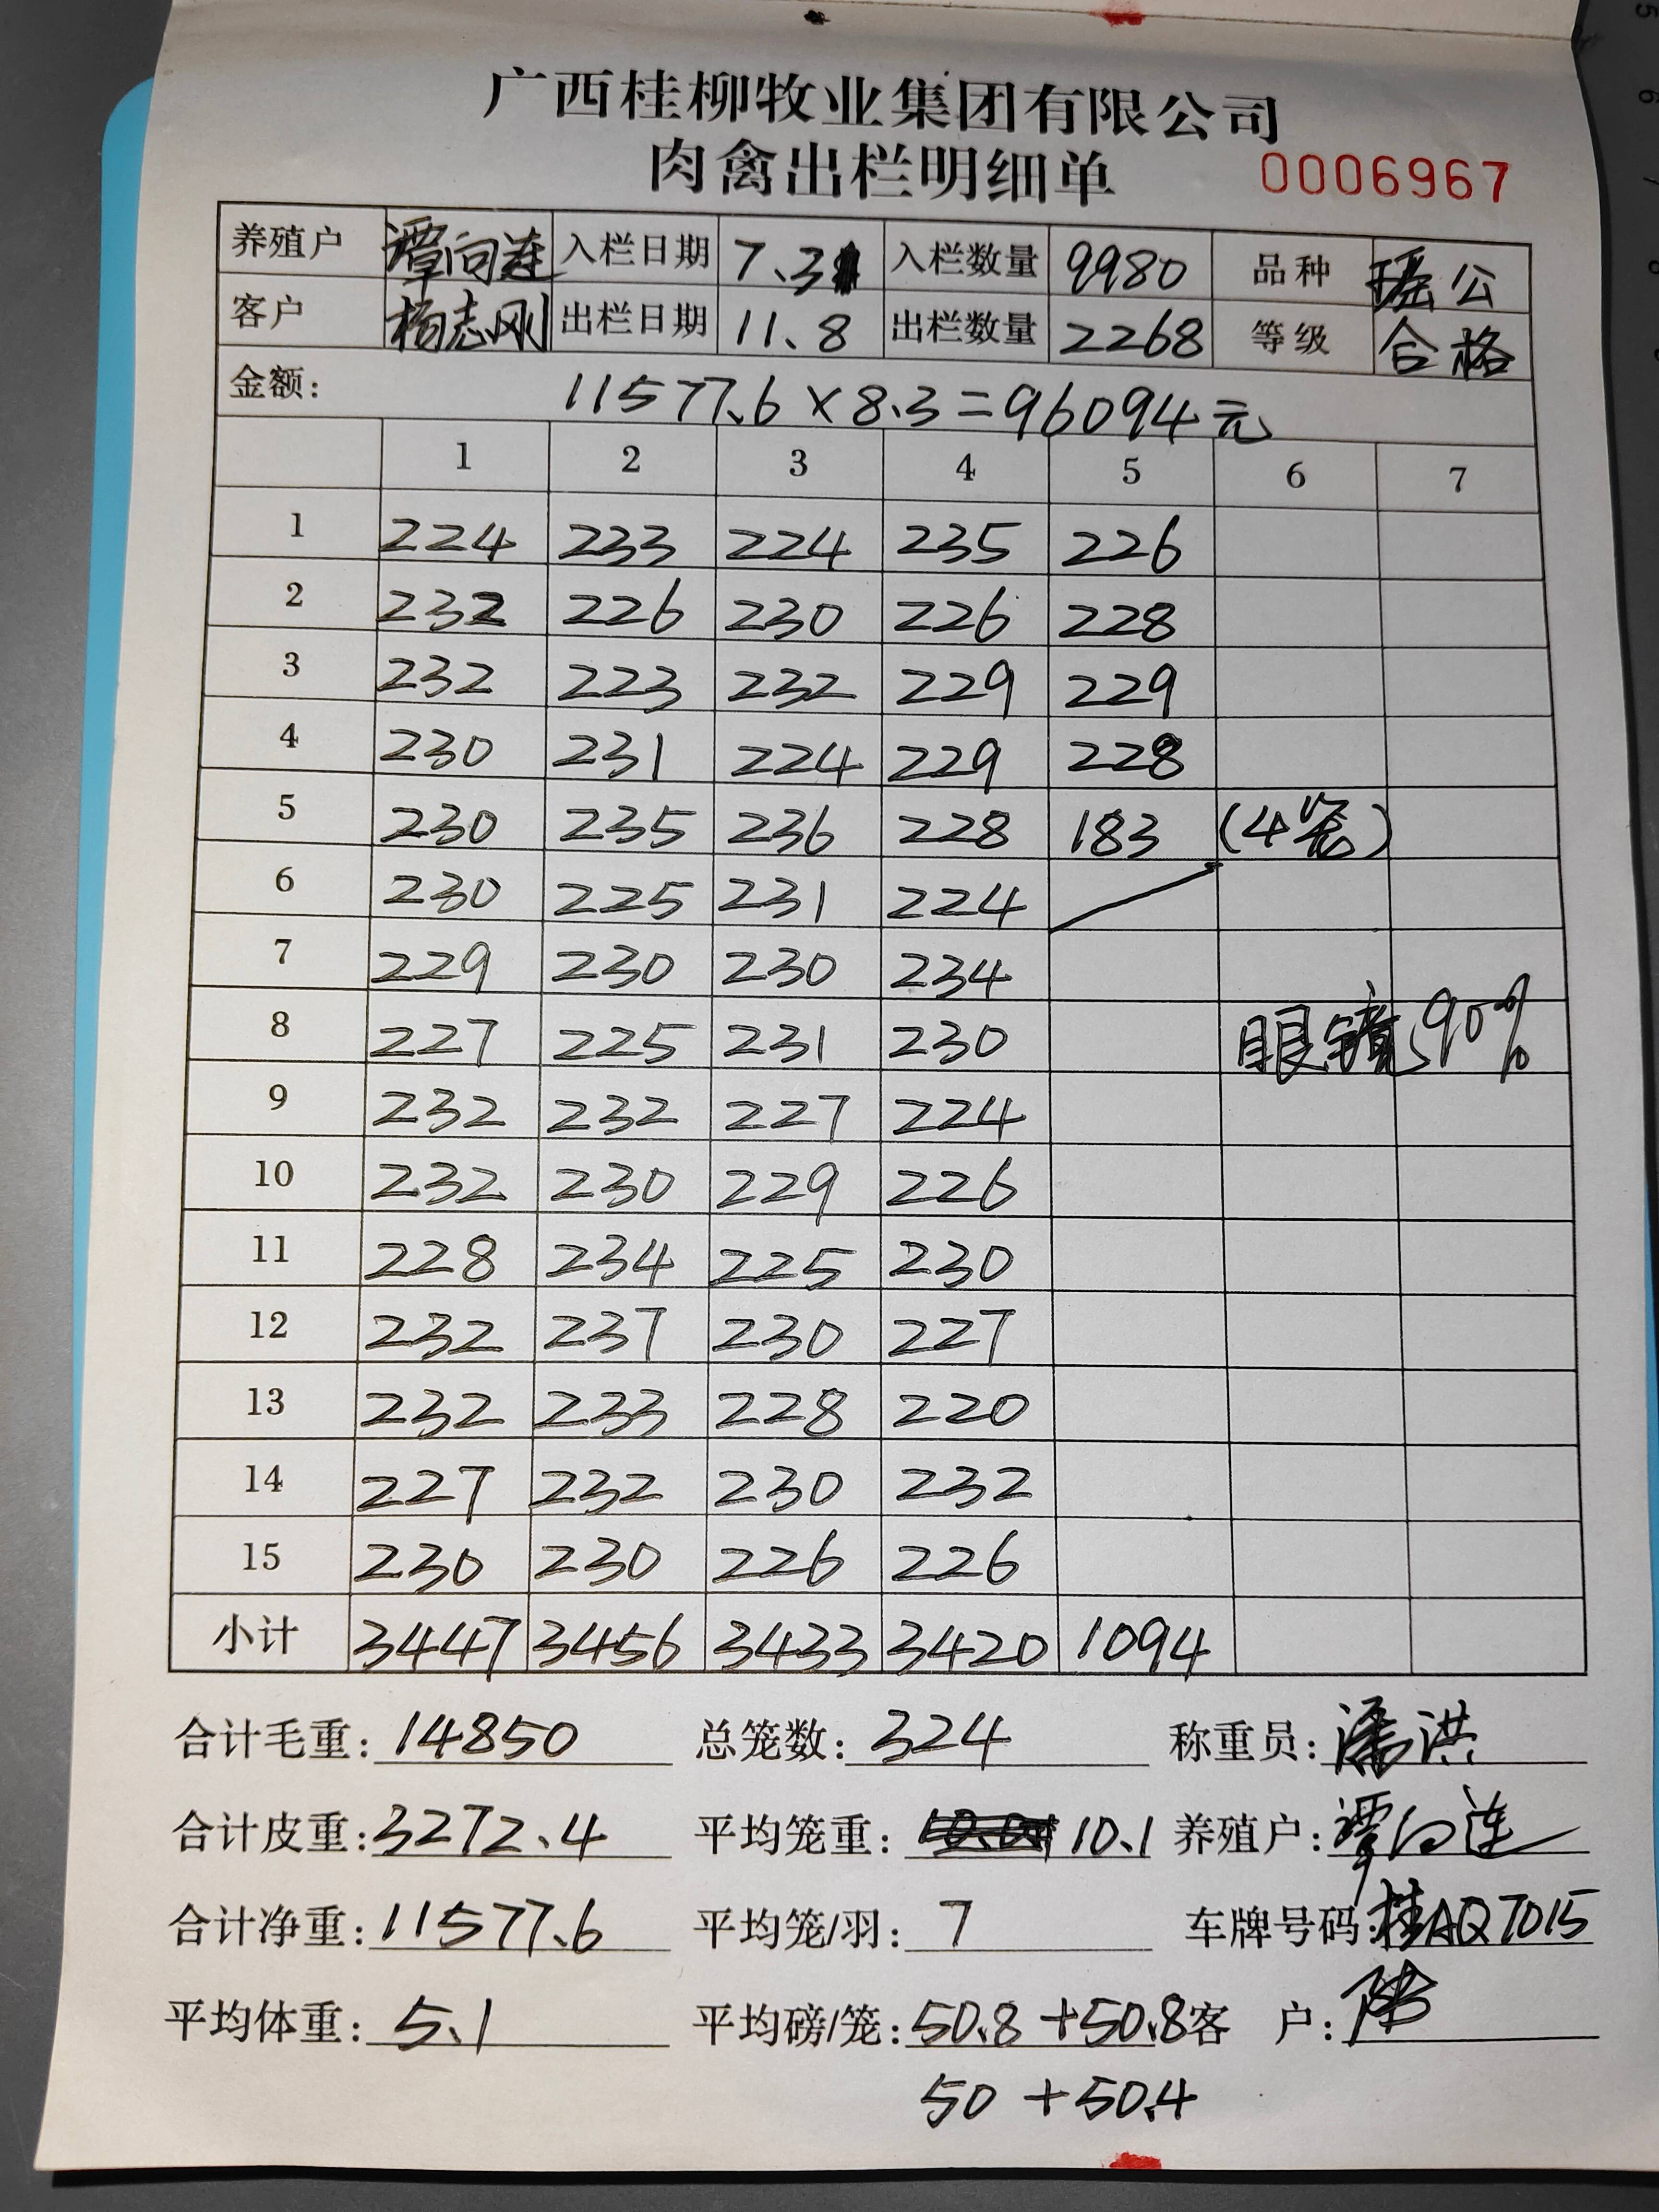 广西桂柳牧业集团有限公司
肉禽出栏明细单 0006967
养殖户 谭向莲 入栏日期 7.3 入栏数量 9980 品种 瑶公
客户 杨志刚 出栏日期 11.8 出栏数量 2268 等级 合格
金额: 11577.6×8.3=96094元
1 2 3 4 5 6 7
1 224 233 224 235 226
2 232 226 230 226 228
3 232 223 232 229 229
4 230 231 224 229 228
5 230 235 236 228 183 (4笼)
6 230 225 231 224
7 229 230 230 234
8 227 225 231 230 眼镜90%
9 232 232 227 224
10 232 230 229 226
11 228 234 225 230
12 232 237 230 227
13 232 233 228 220
14 227 232 230 232
15 230 230 226 226
小计 3447 3456 3433 3420 1094
合计毛重: 14850 总笼数: 324 称重员: 潘洪
合计皮重: 3272.4 平均笼重: 10.1 养殖户: 谭向莲
合计净重: 11577.6 平均笼/羽: 7 车牌号码: 桂AQ7015
平均体重: 5.1 平均磅/笼: 50.8+50.8 客 户:
50+50.4